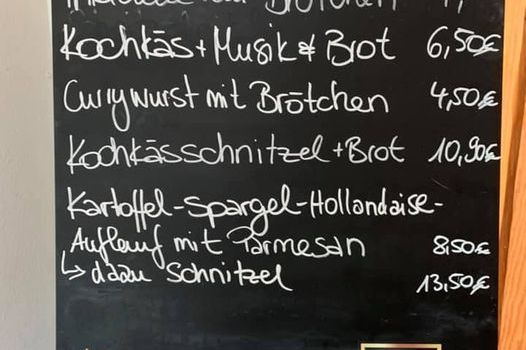 Brötchen
Kochkäs + Musik & Brot 6,50€
Currywurst mit Brötchen 4,50€
Kochkässchnitzel + Brot 10,90€
Kartoffel-Spargel-Hollandaise-
Auflauf mit Parmesan 8,50€
↳ dazu Schnitzel 13,50€